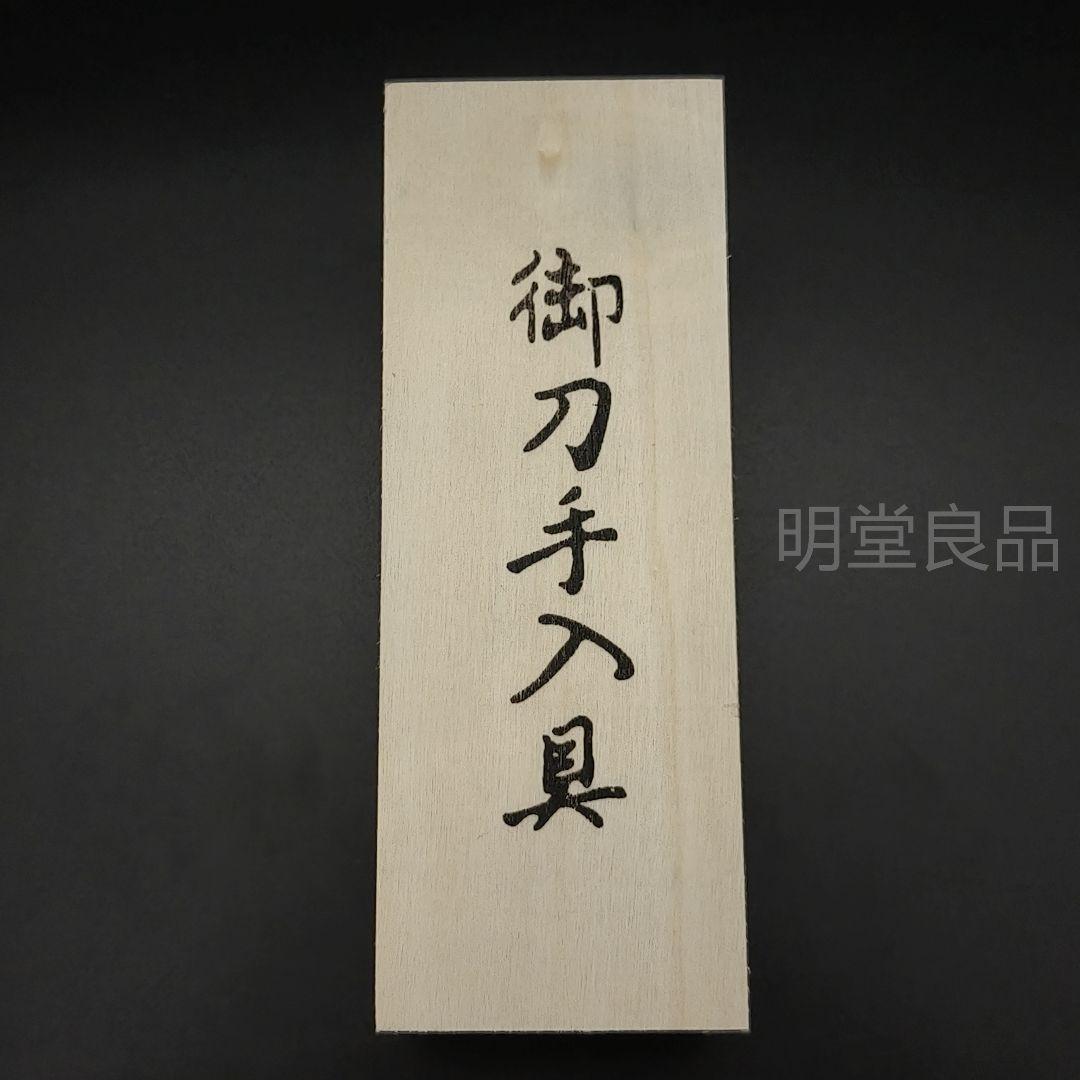 御刀手入具
明堂良品